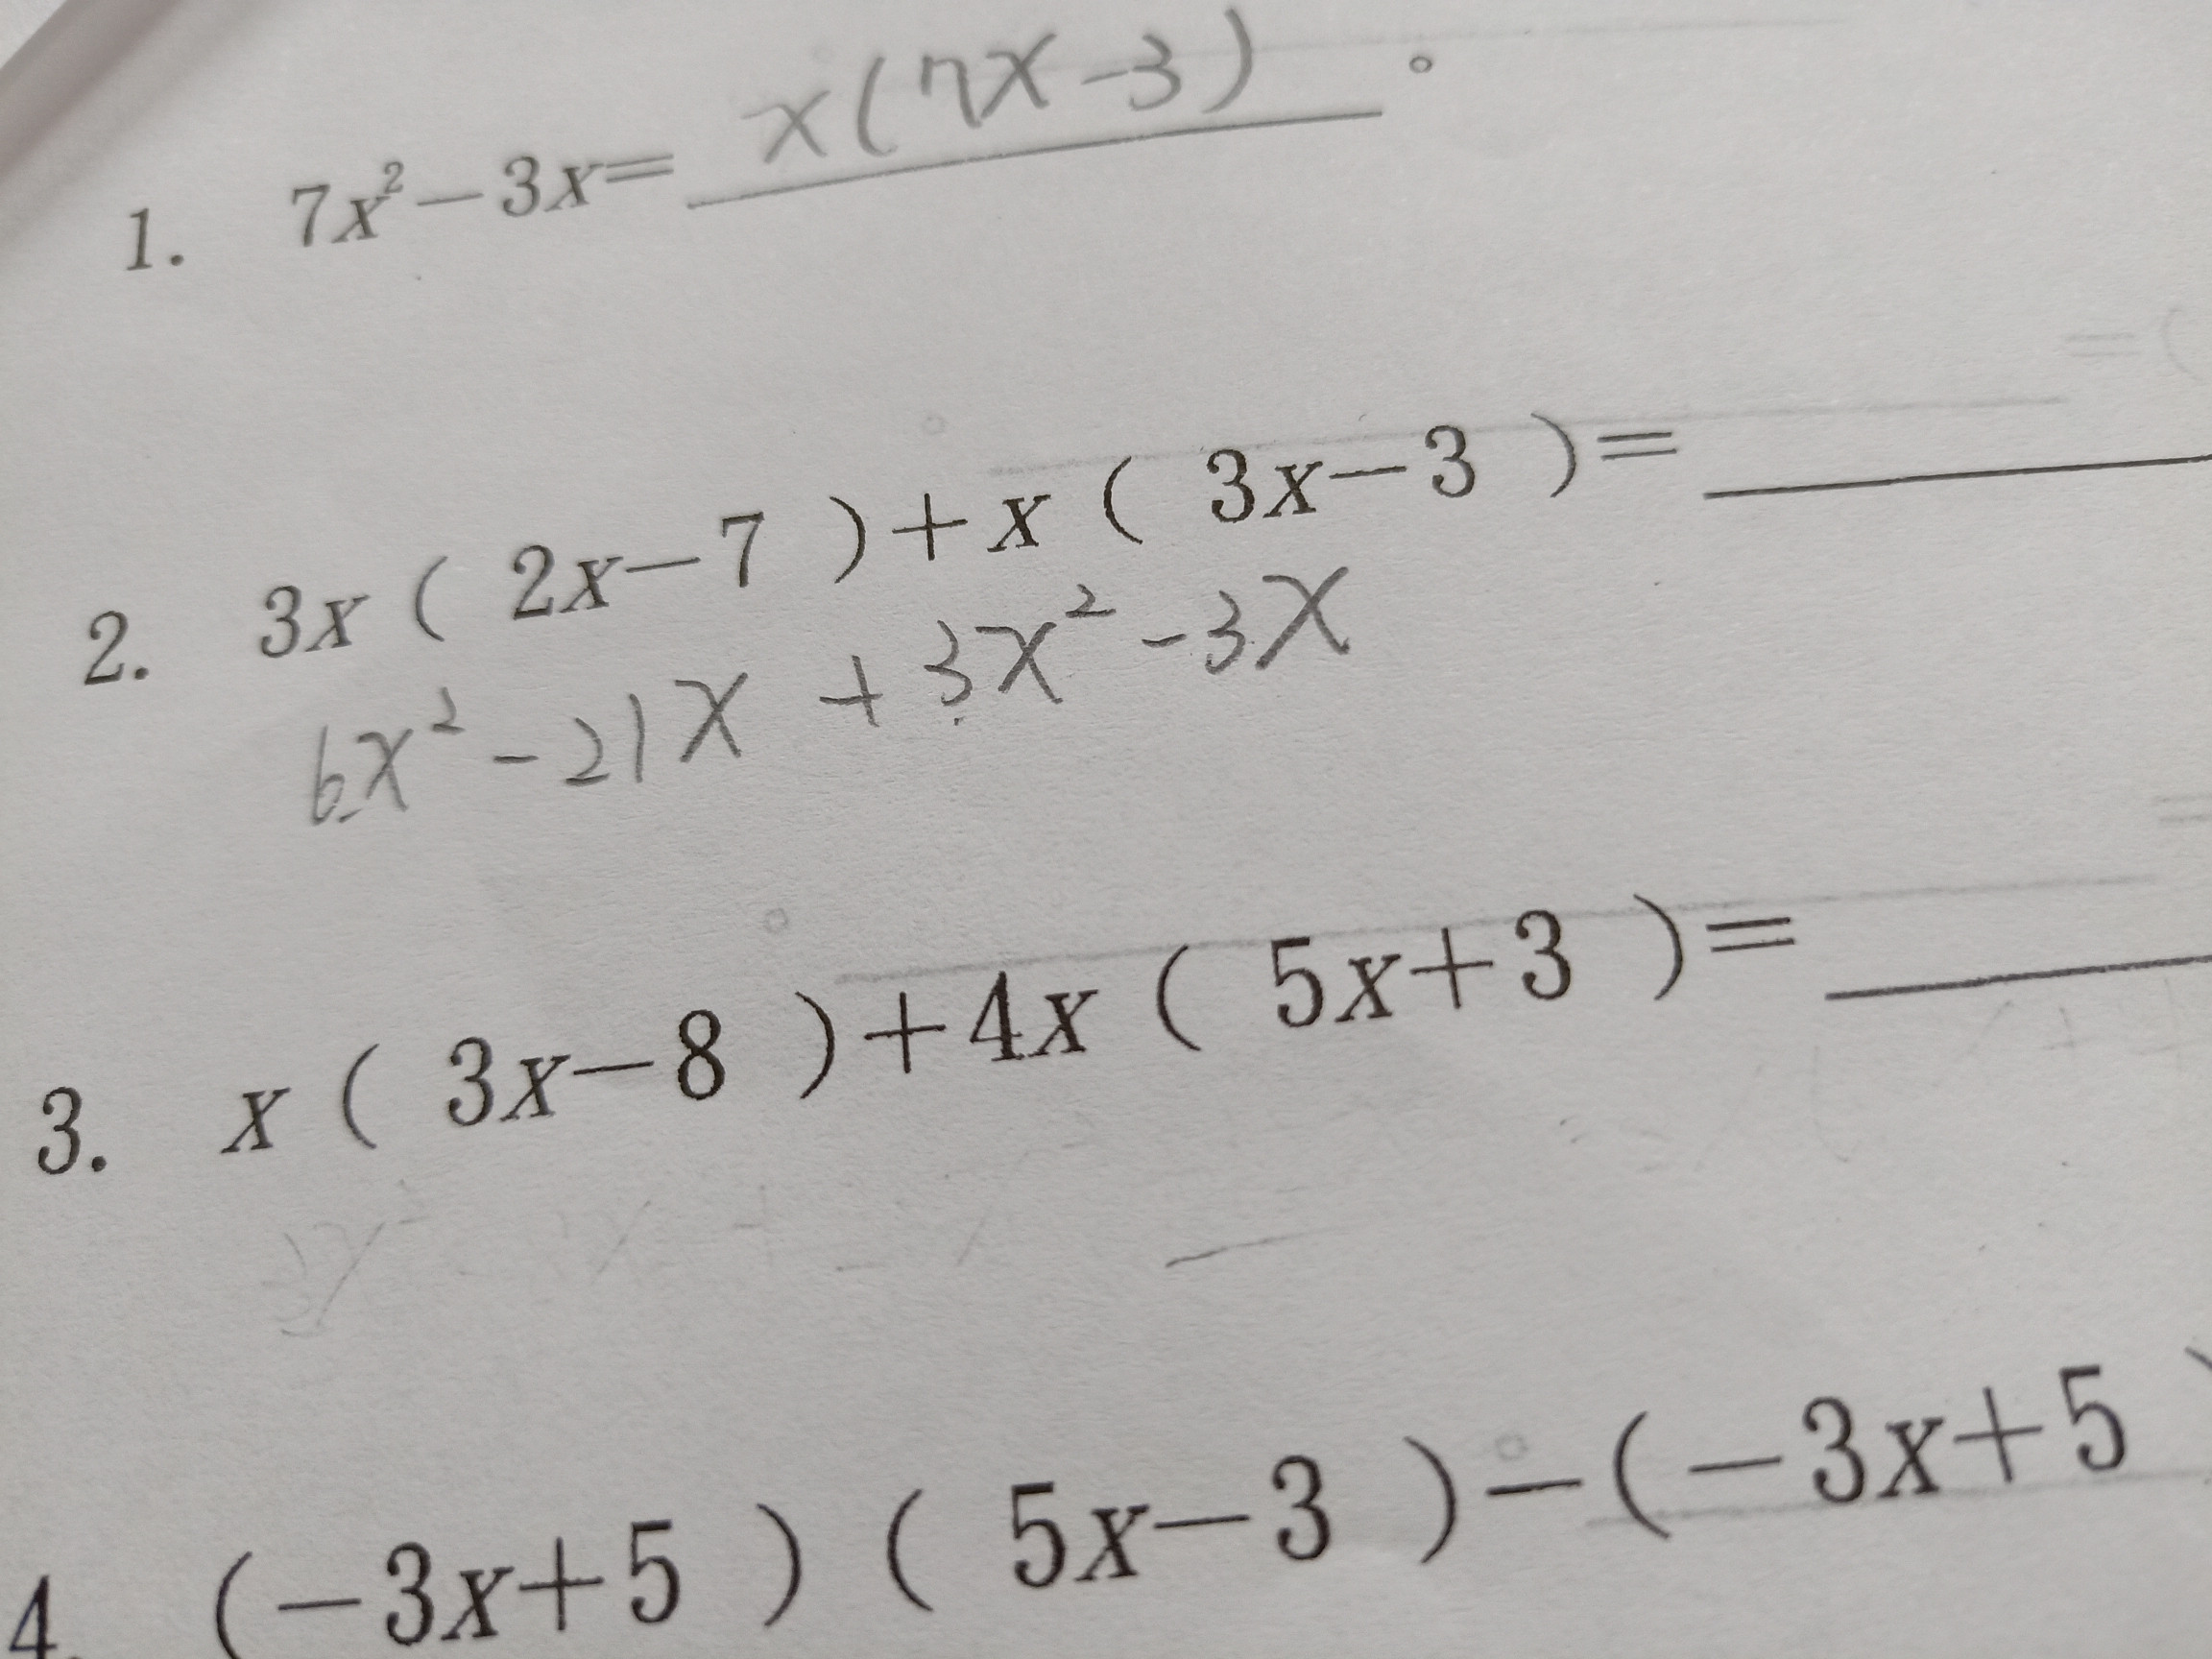 1. 7x²－3x＝ x(7x-3) 。
2. 3x( 2x－7 )＋x( 3x－3 )＝
6x²-21x+3x²-3x
3. x( 3x－8 )＋4x( 5x＋3 )＝
4. (－3x＋5 )( 5x－3 )－(－3x＋5 )